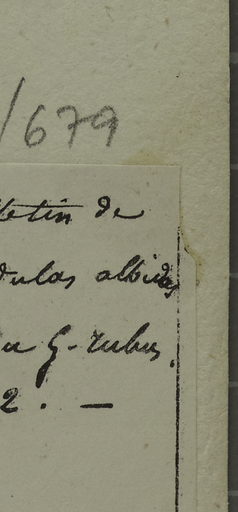 /679
letin de
dulas albidas
u G-rubus,
2. —